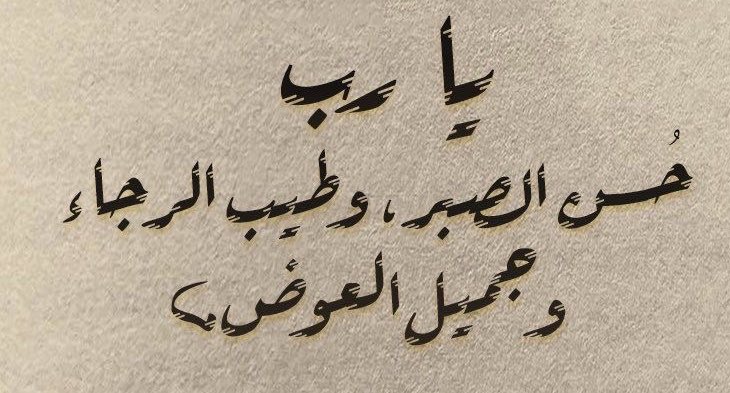 يا رب
حُسن الصبر، وطيب الرجاء
وجميل العوض